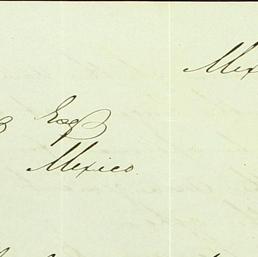 Mex
Esq
Mexico